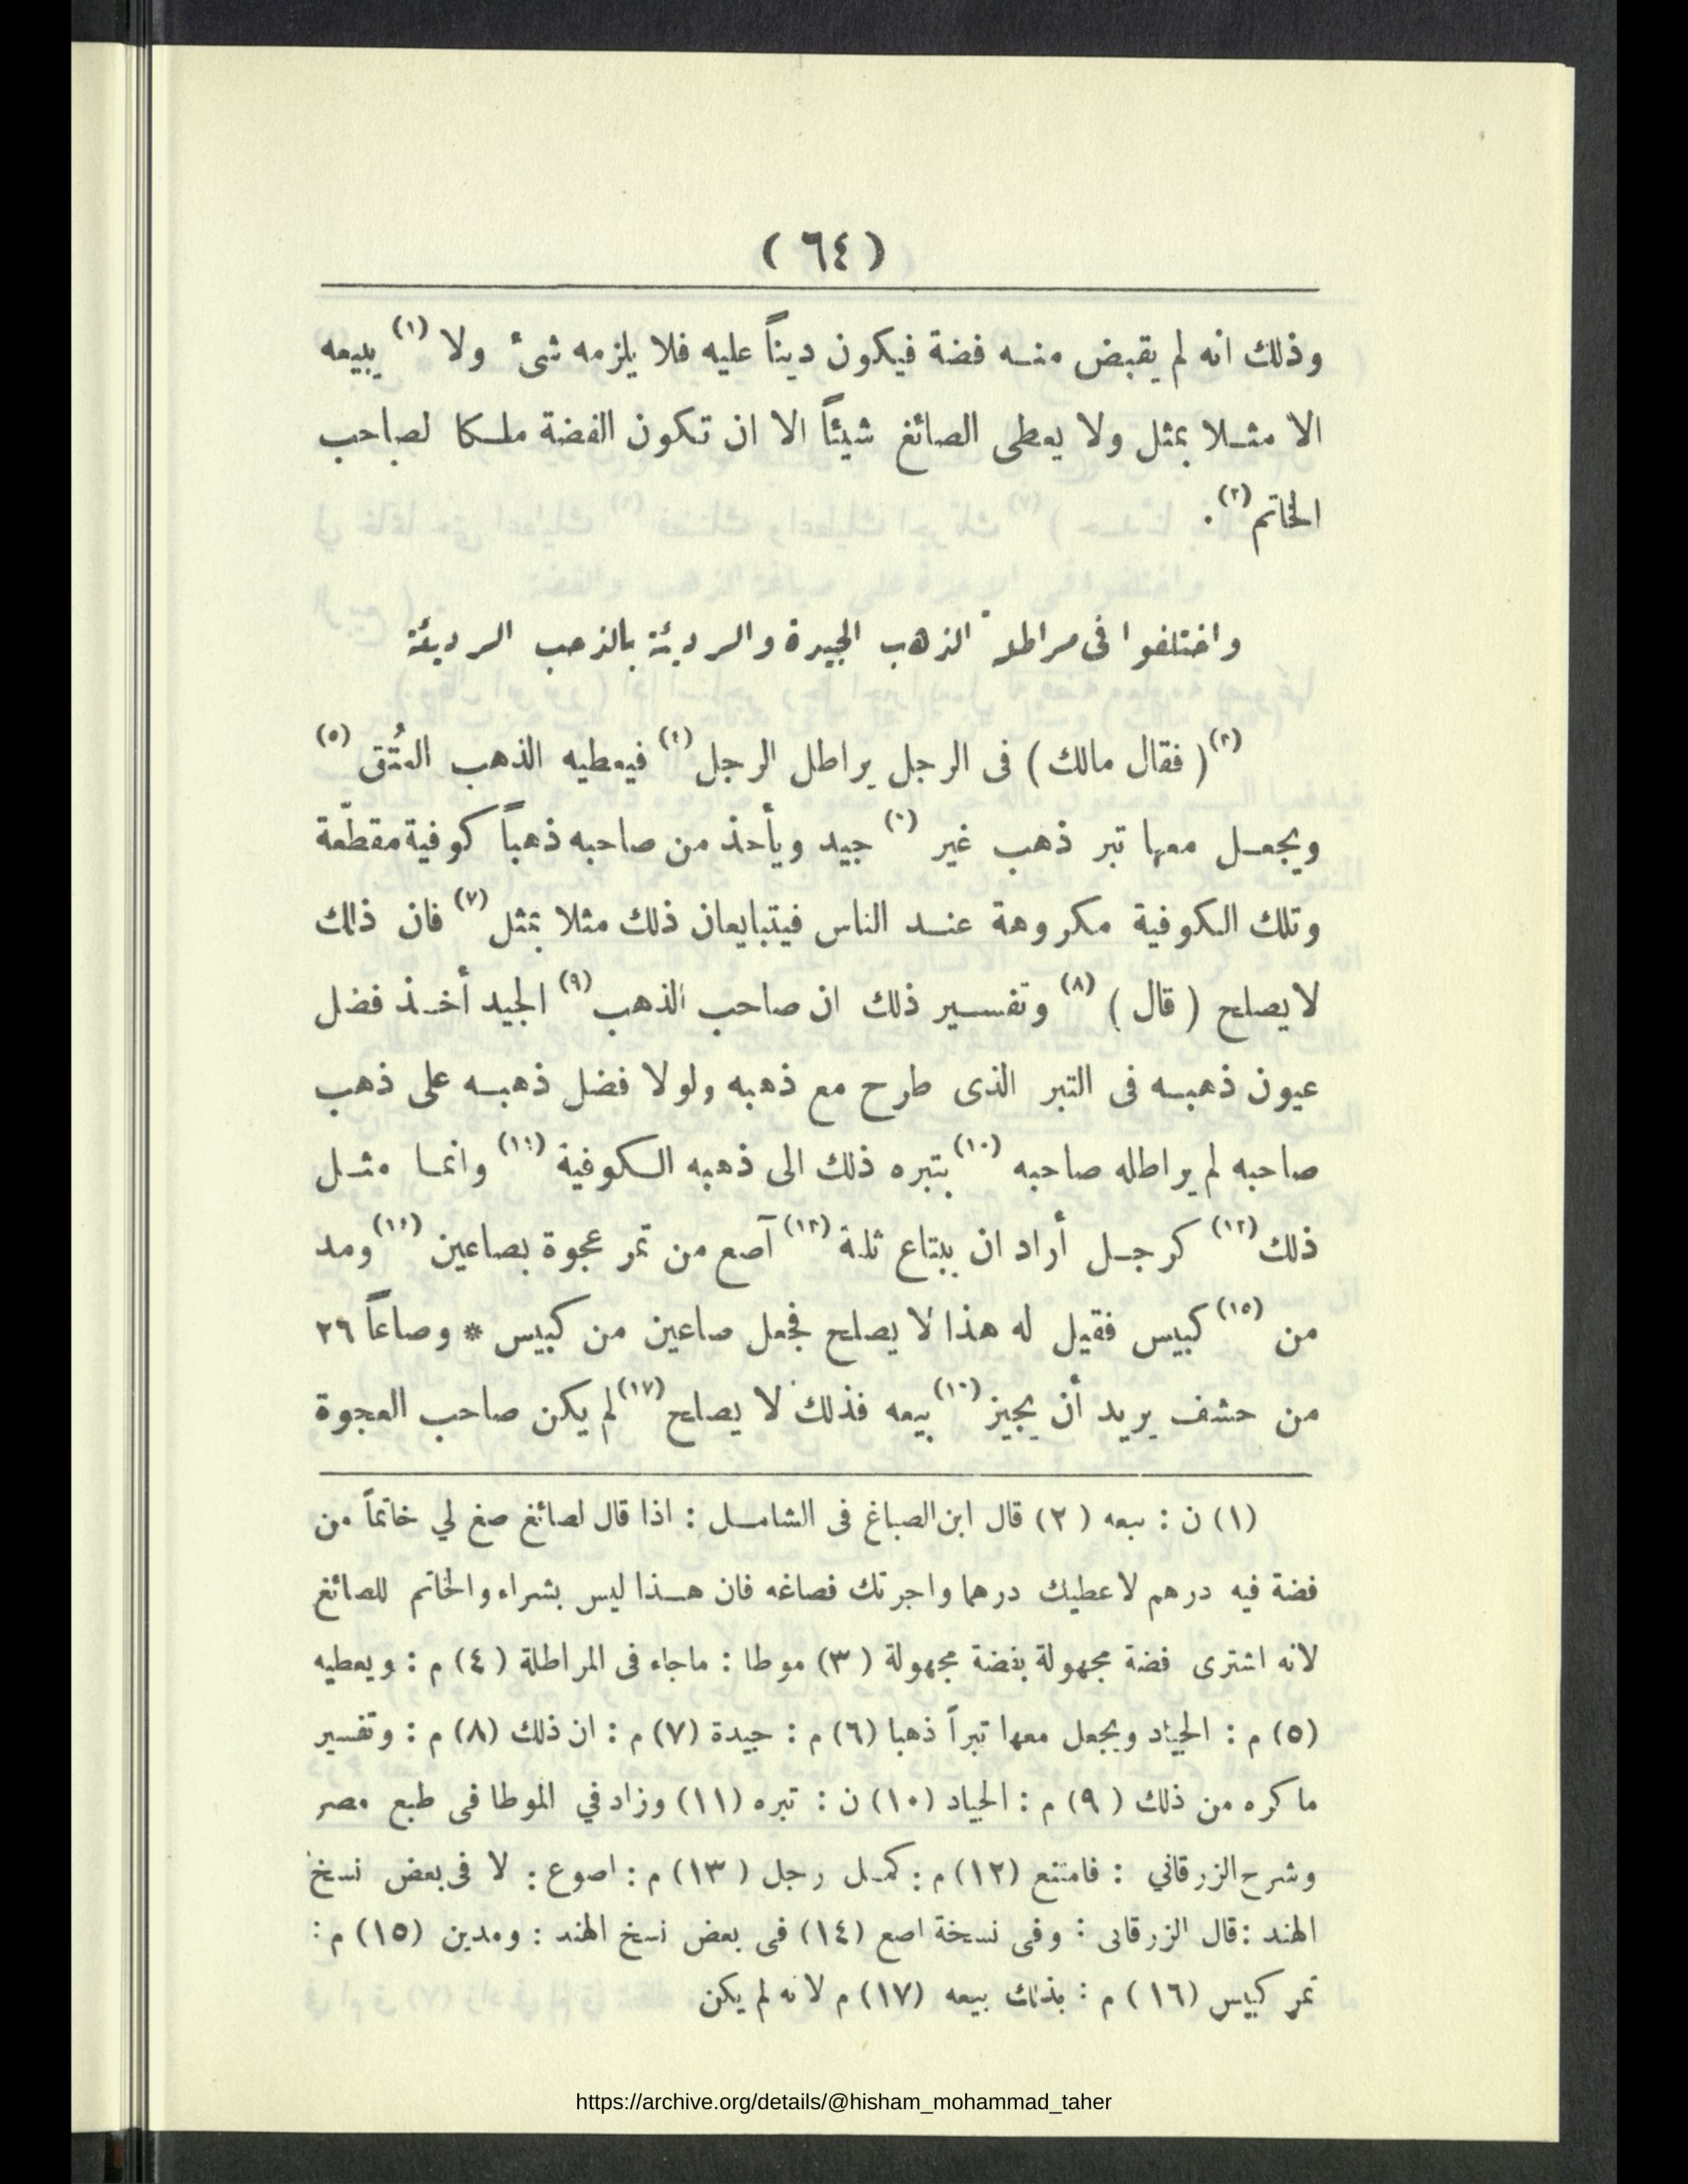 ( ٦٤ )
وذلك انه لم يقبض منه فضة فيكون ديناً عليه فلا يلزمه شىء ولا (١) يبيعه
الا مثلا بمثل ولا يعطى الصائغ شيئاً الا ان تكون الفضة ملكا لصاحب
الخاتم (٢).
واختلفوا فى مراطلة الذهب الجيدة والرديئة بالذهب الرديئة
(٣) ( فقال مالك ) فى الرجل يراطل الرجل (٤) فيعطيه الذهب العُتَق (٥)
ويجعل معها تبر ذهب غير (٦) جيد ويأخذ من صاحبه ذهباً كوفية مقطّعة
وتلك الكوفية مكروهة عند الناس فيتبايعان ذلك مثلا بمثل (٧) فان ذلك
لا يصلح ( قال ) (٨) وتفسير ذلك ان صاحب الذهب (٩) الجيد أخذ فضل
عيون ذهبه فى التبر الذى طرح مع ذهبه ولولا فضل ذهبه على ذهب
صاحبه لم يراطله صاحبه (١٠) بتبره ذلك الى ذهبه الكوفية (١١) وانما مثل
ذلك (١٢) كرجل أراد ان يبتاع ثلثة (١٣) آصع من تمر عجوة بصاعين (١٤) ومد
من (١٥) كبيس فقيل له هذا لا يصلح فجعل صاعين من كبيس * وصاعاً ٢٦
من حشف يريد أن يجيز (١٦) بيعه فذلك لا يصلح (١٧) لم يكن صاحب العجوة
(١) ن : ببعه (٢) قال ابن الصباغ فى الشامل : اذا قال لصائغ صغ لي خاتماً من
فضة فيه درهم لاعطيك درهما واجرتك فصاغه فان هذا ليس بشراء والخاتم للصائغ
لانه اشترى فضة مجهولة بفضة مجهولة (٣) موطا : ماجاء فى المراطلة (٤) م : ويعطيه
(٥) م : الجياد ويجعل معها تبراً ذهبا (٦) م : جيدة (٧) م : ان ذلك (٨) م : وتفسير
ما كره من ذلك (٩) م : الجياد (١٠) ن : تبره (١١) وزاد في الموطا فى طبع مصر
وشرح الزرقاني : فامتنع (١٢) م : كمثل رجل (١٣) م : اصوع : لا فى بعض نسخ
الهند : قال الزرقانى : وفى نسخة اصع (١٤) فى بعض نسخ الهند : ومدين (١٥) م :
تمر كبيس (١٦) م : بذلك بيعه (١٧) م لانه لم يكن
https://archive.org/details/@hisham_mohammad_taher